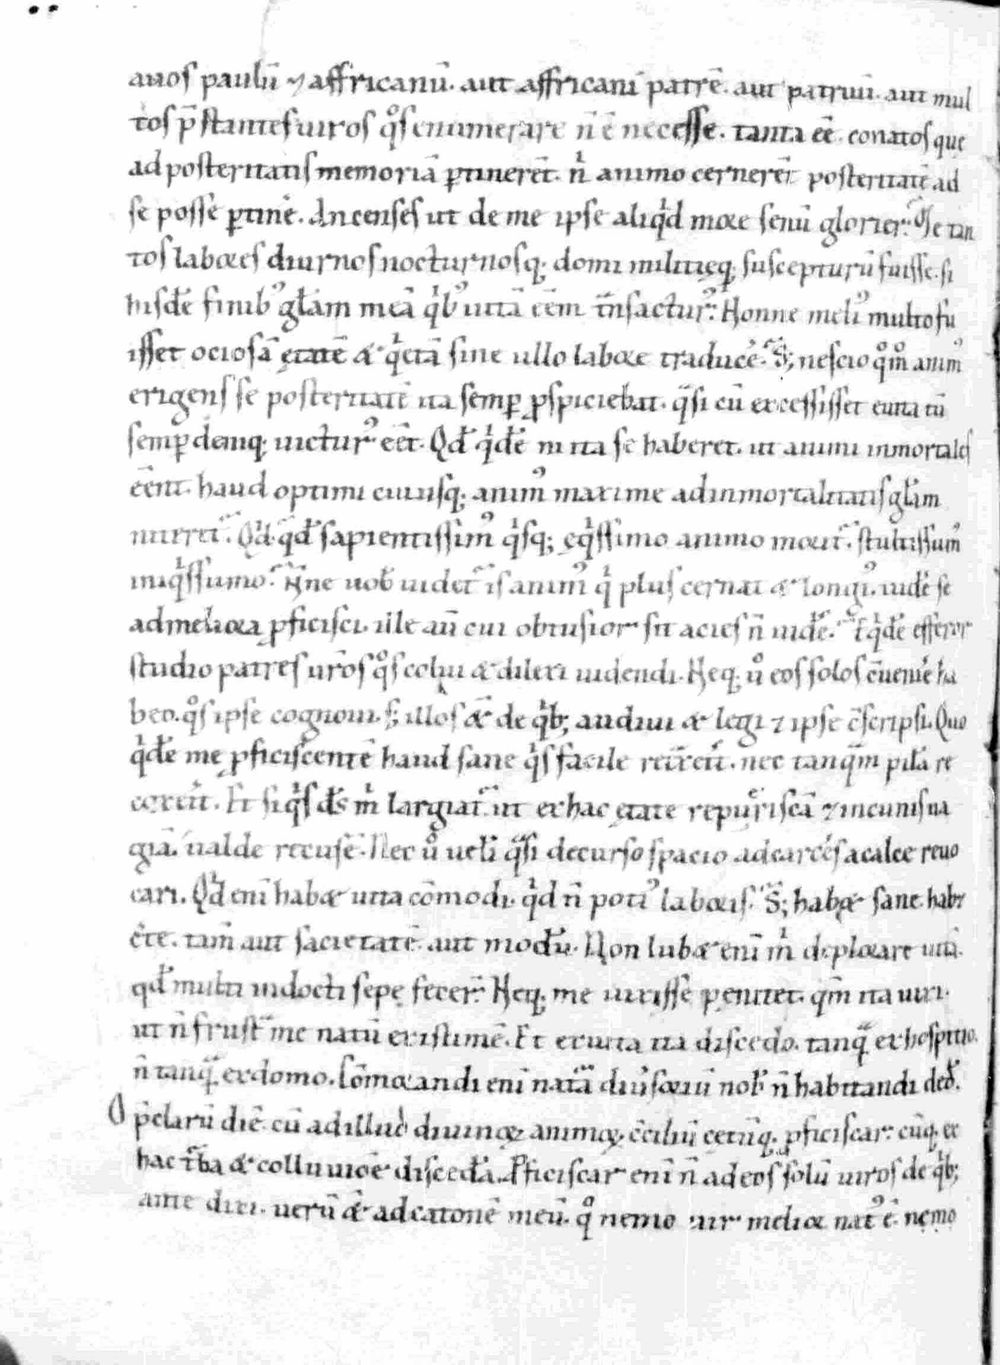 auos paulū ⁊ affricanū. aut affricani patrē. aut patruū. aut mul
tos p̄stantes uiros q̊s enumerare n̄ ē necesse. tanta eē. conatos que
ad posteritatis memoriā ꝑtinerēt. nͥ animo cernerēt posteritatē ad
se posse ꝑtinē. An censes ut de me ipse aliqͥd more senū glorier. Me tan
tos labores diurnos nocturnosq; domi militięq; suscepturū fuisse. si
hisdē finibꝰ gl̄am meā qͥbꝰ uitā eēm t̄nsacturꝰ. Nonne meliꝰ multo fu
isset ociosā ętatē & qͥetā sine ullo labore traducē. S; nescio q̊m̊ animꝰ
erigens se posteritatē ita semꝑ ꝓspiciebat. qͣsi cū excessisset euita tū
semꝑ deniq; uicturꝰ eēt. Qd̄ qͥdē ni ita se haberet. ut animi inmortales
eēnt. haud optimi cuiusq; animꝰ maxime ad inmortalitatis gl̄am
niteret᷑. Qͥd. qd̄ sapientissimꝰ qͥsq; ęqͥssimo animo morit᷑. stultissimꝰ
iniqͥssimo. Nn̄e uob̄ uidet᷑ is animꝰ qͥ plus cernat & longiꝰ. uidē se
ad meliora ꝓficisci. ille aū cui obtusior sit acies n̄ uidē. Eqͥdē efferor
studio patres ur̄os q̊s colui & dilexi uidendi. Neq; ů eos solos c̄uenīe ha
beo. q̊s ipse cognoui. s; illos &̄ de qͥb; audiui & legi ⁊ ipse c̄scripsi. Quo
qͥdē me ꝓficiscentē haud sane qͥs facile ret̄xerit. nec tanqͣm pilā re
coxerit. Et si qͥs ds̄ mͥ largiat᷑ ut ex hac ętate repueriscā ⁊ in cunis ua
giā. ualde recusē. Nec ů uelī qͣsi decurso spacio ad carcēs a calce reuo
cari. Qͥd enī habet uita cōmodi. qͥd n̄ potiꝰ laboris. S; habet sane. hab&
cēte. tam̄ aut sacietatē. aut modū. Non lubet enī mͥ deplorare uitā.
qd̄ multi indocti sepę fecer̄. Neq; me uixisse pęnitet. qm̄ ita uixi.
ut n̄ frustͣ me natū existimē. Et ex uita ita discedo. tanqͣ ex hospitio.
n̄ tanqͣ ex domo. Com̄orandi enī natͣā diusoriū nob̄ n̄ habitandi ded̄.
O p̄clarū diē. cū ad illud diuinoꝝ animoꝝ c̄ciliū cetūq; ꝓficiscar. cūq; ex
hac t̄ba & colluuiōe discedā. Ꝓficiscar enī n̄ ad eos solū uiros de qͥb;
ante dixi. uerū &̄ ad catonē meū. q̊ nemo uir melior natꝰ ē. nęmo